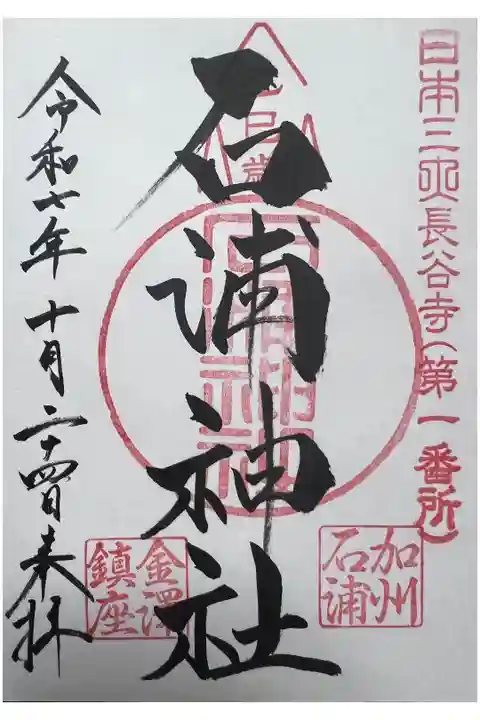 日本三央長谷寺(第一番所)
乙巳歳
石浦神社
加州
石浦
金澤
鎮座
令和七年十月二十四日来拝